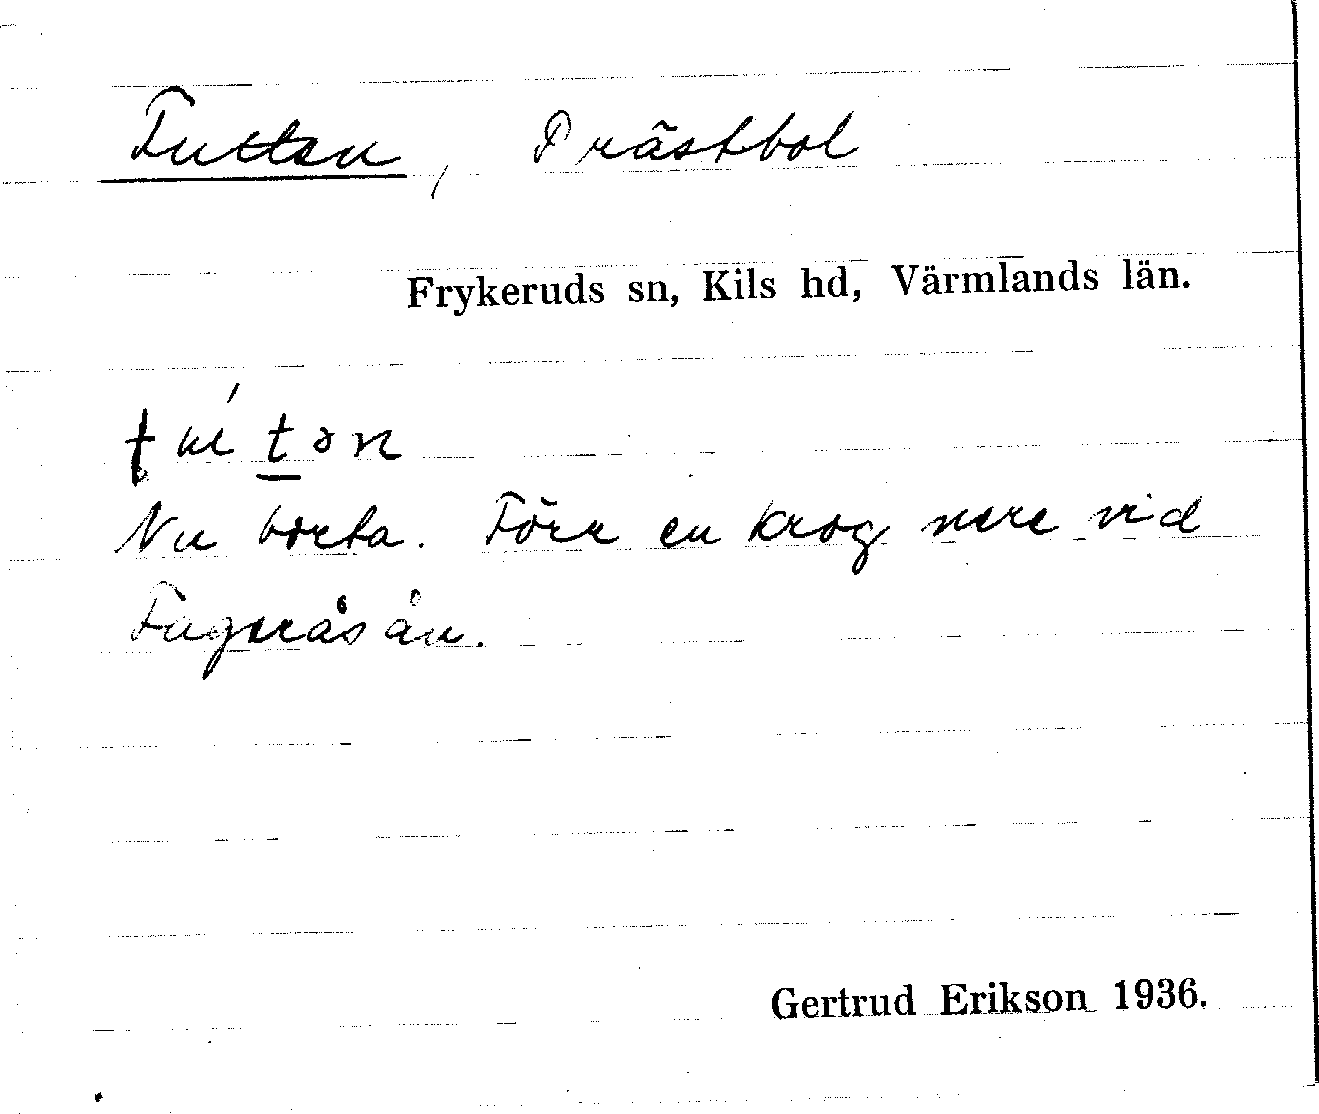 Futten, Prästbol
Frykeruds sn, Kils hd, Värmlands län.
Nu borta. Förr en krog nere vid
Fageråsån.
Gertrud Erikson 1936.